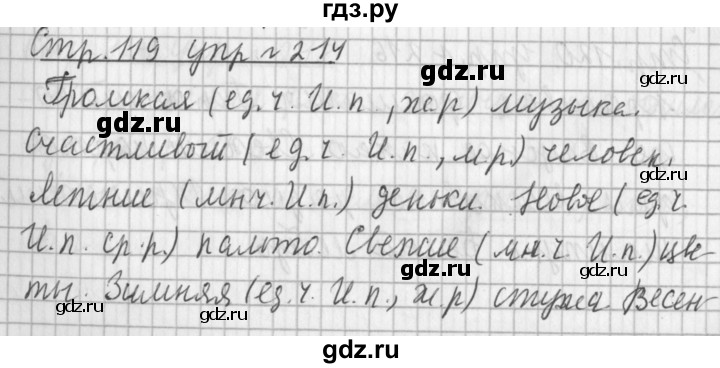 гдз.ру
Стр. 119 упр № 214
Громкая (ед. ч. И. п., ж.р) музыка.
gdz.ru gdz.ru
Счастливый (ед. ч. И. п., м.р.) человек.
Летние (мн ч. И. п.) деньки. Новое (ед. ч.
И. п. ср. р.) пальто. Свежие (мн. ч. И. п.) цве-
gdz.ru gdz.ru
ты. Зимняя (ед. ч. И. п., ж.р) стужа. Весен-
gdz.ru